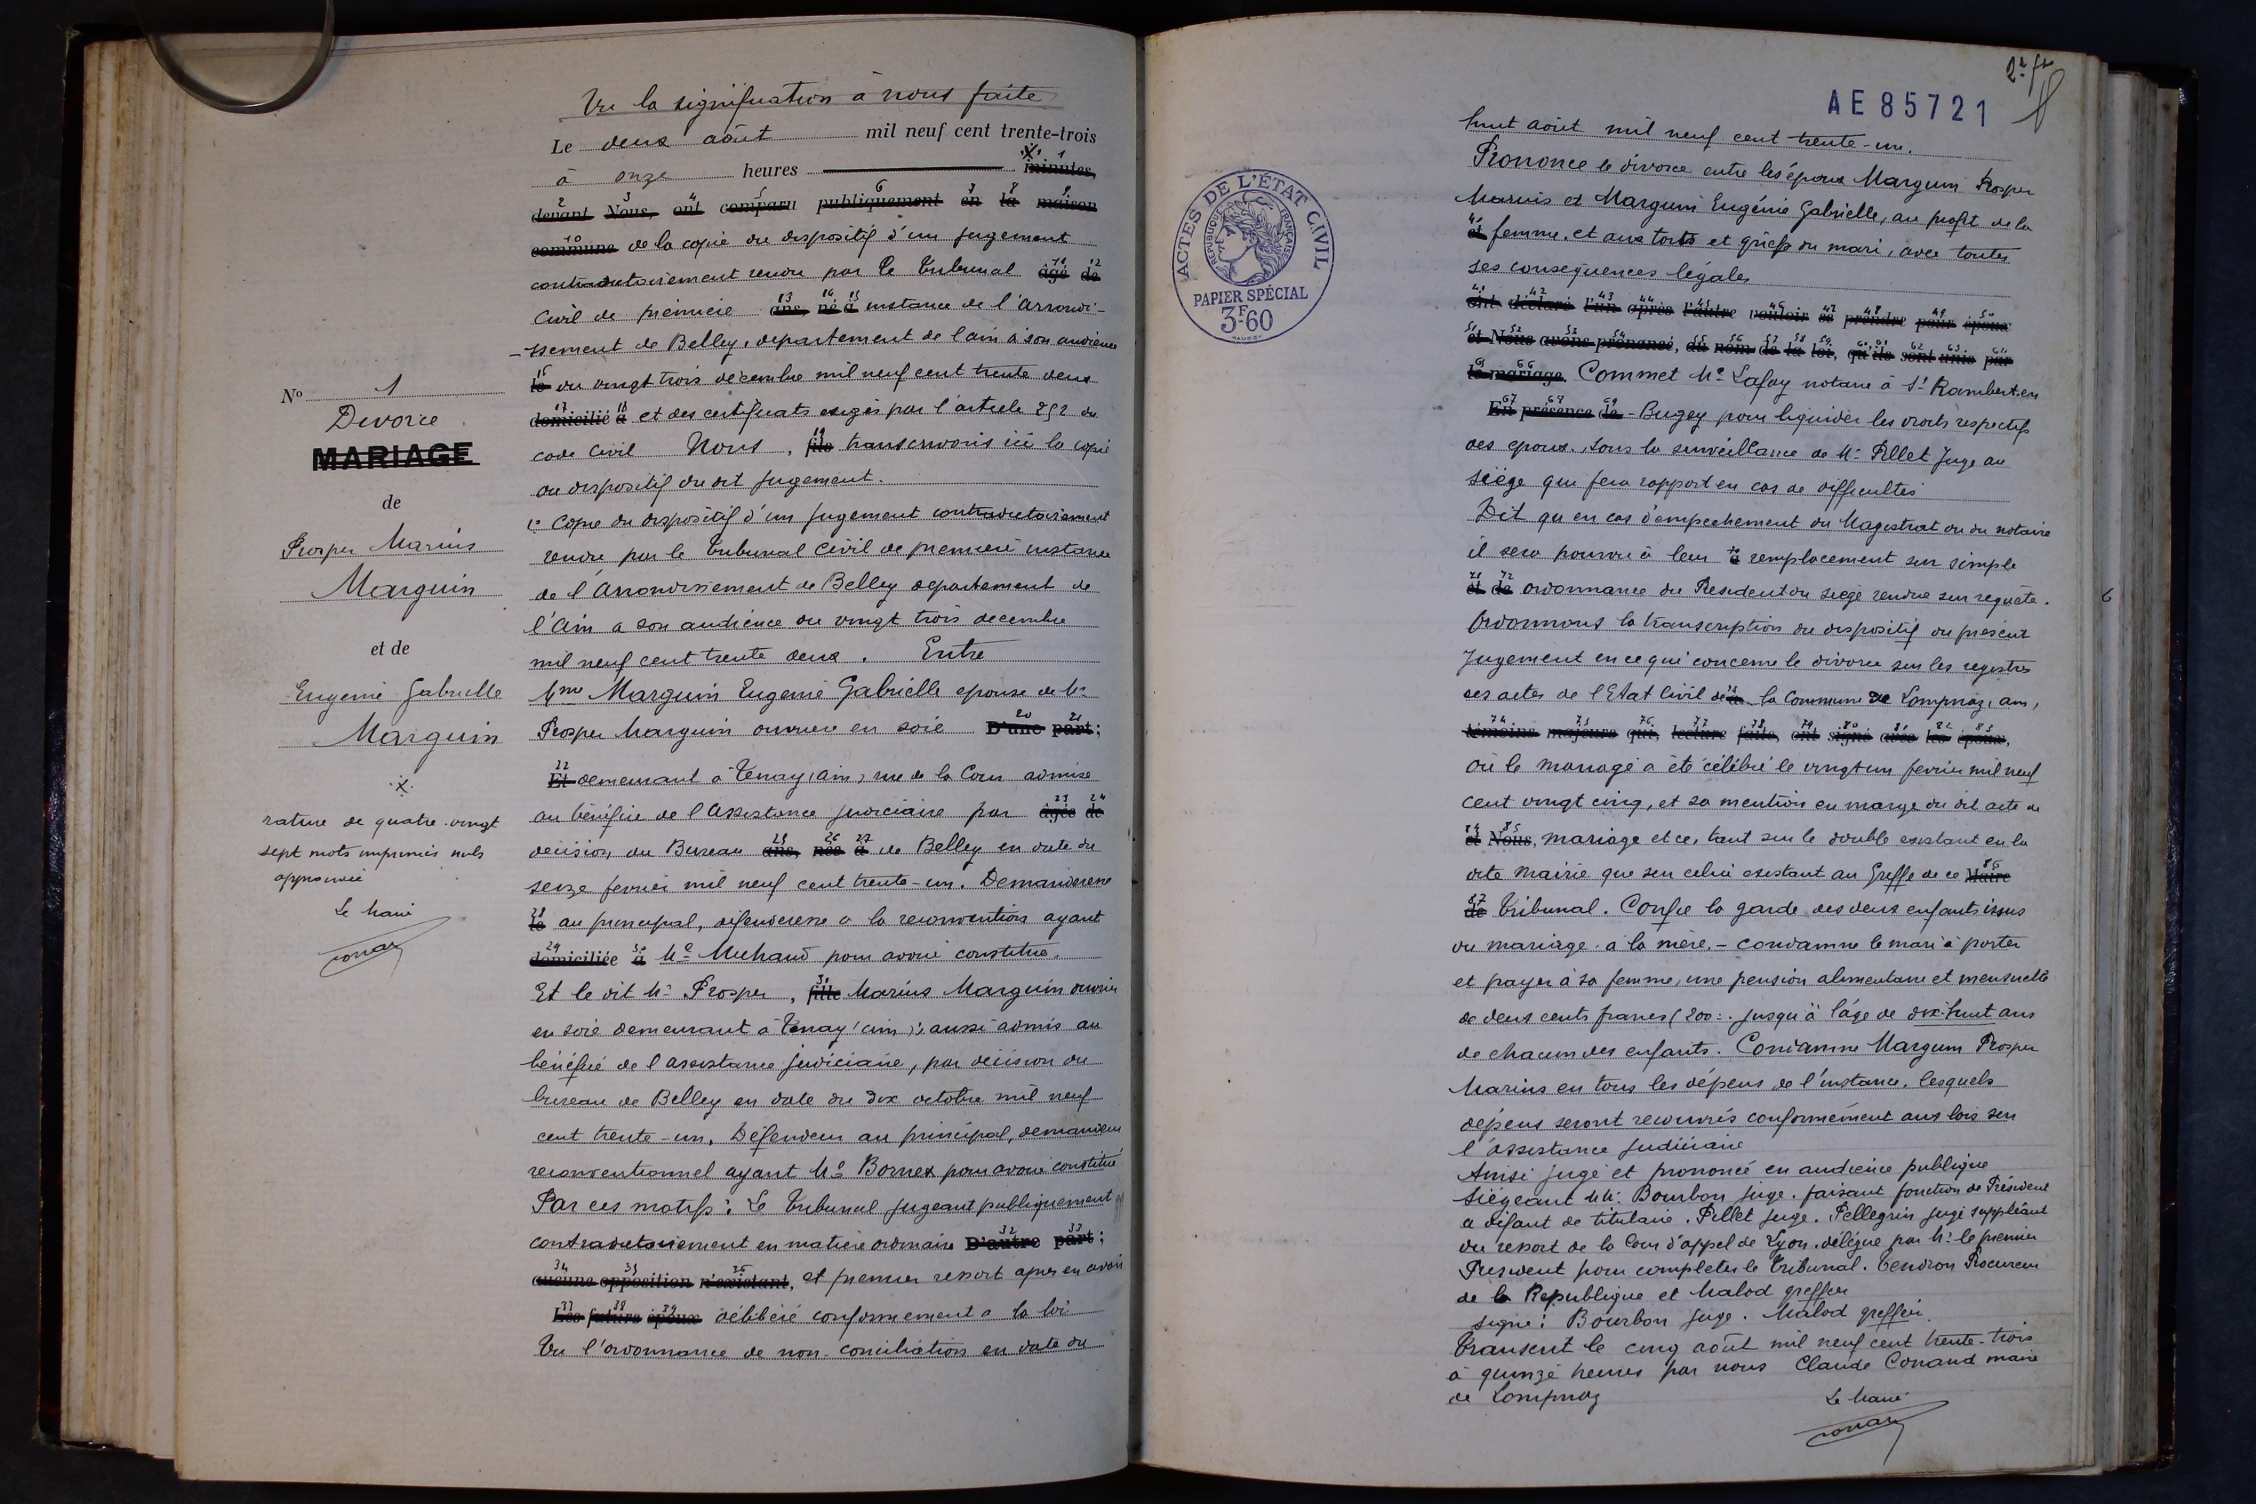 Vu la signification à nous faite
Le deux août mil neuf cent trente-trois
à onze heures minutes,
devant Nous, ont comparu publiquement en la maison
commune de la copie du dispositif d'un jugement
contradictoirement rendu par le Tribunal âgé de
Civil de première ans, né à instance de l'arrondi-
-ssement de Belley, departement de l'ain à son audience
le du vingt trois décembre mil neuf cent trente deux
domicilié à et des certificats exigés par l'article 252 du
code Civil Nous, fils transcrivons ici la copie
du dispositif du dit jugement.
1º Copie du dispositif d'un jugement contradictoirement
rendu par le Tribunal Civil de première instance
de l'Arrondissement de Belley departement de
l'Ain a son audience du vingt trois decembre
mil neuf cent trente deux. Entre
Mme Marguin Eugenie Gabrielle epouse de Mr
Prosper Marguin ouvriere en soie D'une part;
Et demeurant à Tenay (ain) rue de la Cour admise
au bénéfice de l'Assistance judiciaire par âgée de
décision du Bureau ans, née à de Belley en date du
seize fevrier mil neuf cent trente-un. Demanderesse
le au principal, défenderesse a la reconvention ayant
domiciliée à Me Michaud pour avoué constitué.
Et le dit Mr Prosper, fille Marius Marguin ouvrier
en soie demeurant à Tenay (ain); aussi admis au
bénéfice de l'assistance judiciaire, par décision du
bureau de Belley en date du dix octobre mil neuf
cent trente-un. Défendeur au principal, demandeur
reconventionnel ayant Me Bornex pour avoué constitué
Par ces motifs: Le Tribunal jugeant publiquement
contradictoirement en matière ordinaire D'autre part;
aucune opposition n'existant, et premier ressort apres en avoir
Les futurs époux délibéré conformement a la loi
Vu l'ordonnance de non-conciliation en date du
No 1
Divorce
MARIAGE
de
Prosper Marius
Marguin
et de
Eugenie Gabrielle
Marguin
rature de quatre-vingt
sept mots imprimés nuls
approuvée
Le Maire
AE85721
ACTES DE L'ÉTAT CIVIL
RÉPUBLIQUE FRANÇAISE
PAPIER SPÉCIAL
3F60
huit août mil neuf cent trente-un.
Prononce le divorce entre les époux Marguin Prosper
Marius et Marguin Eugénie Gabrielle, au profit de la
et femme, et aux torts et griefs du mari, avec toutes
ses conséquences légales
ont déclaré l'un après l'autre vouloir se prendre pour époux
et Nous avons prononcé, au nom de la loi, qu'ils sont unis par
le mariage. Commet Me Lafay notaire à St Rambert-en
En présence de -Bugey pour liquider les droits respectifs
des epoux, sous la surveillance de Mr Pillet Juge au
siège qui fera rapport en cas de difficultés
Dit qu'en cas d'empechement du Magistrat ou du notaire
il sera pourvu à leur à remplacement sur simple
et de ordonnance du Président du siège rendue sur requête.
Ordonnons la transcription du dispositif du présent
Jugement en ce qui concerne le divorce sur les registres
des actes de l'Etat Civil de la Commune de Lompnaz, ain,
témoins majeurs qui, lecture faite, ont signé avec les époux,
où le mariage a été célébré le vingt un fevrier mil neuf
cent vingt cinq, et sa mention en marge du dit acte de
et Nous, mariage et ce, tant sur le double existant en la
dite mairie que sur celui existant au Greffe de ce Maire
de tribunal. Confie la garde des deux enfants issus
du mariage à la mère. - Condamne le mari à porter
et payer à sa femme, une pension alimentaire et mensuelle
de deux cents francs (200=. jusqu'à l'âge de dix-huit ans
de chacun des enfants. Condamne Marguin Prosper
Marius en tous les dépens de l'instance, lesquels
dépens seront recouvrés conformément aux lois sur
l'assistance judiciaire
Ainsi jugé et prononcé en audience publique
Siégeant MM. Bourbon Juge, faisant fonction de Président
a défaut de titulaire. Pillet Juge. Pellegrin Juge suppléant
du ressort de la Cour d'appel de Lyon, délégué par Mr le premier
Président pour completer le Tribunal. Tendron Procureur
de la République et Malod greffier
signé: Bourbon Juge. Malod greffier.
Transcrit le cinq août mil neuf cent trente-trois
à quinze heures par nous Claude Conand maire
de Lompnaz
Le Maire